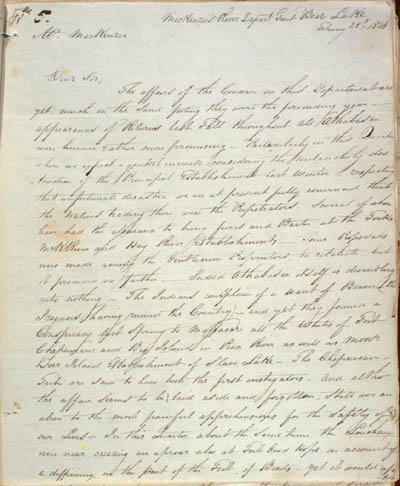 5.
Mackenzie's River Depart. Great Bear Lake
February 28th 1814
Mr. MacKenzie
Dear Sir,
The affairs of the Concern in this Department are
yet much on the same footing they were the preceeding year —
appearances of Returns last Fall throughout all Athabasca
were however rather more promising — Particularly in this Quarter
where we expect a general increase considering the melancholy
of the Principal Establishment last Winter, respecting
that unfortunate disaster we are at present fully convinced that
the Natives trading there were the Perpetrators. Several of whom
have had the assurance to bring furrs and Barter at the Forks
McKenzie and Hay River Establishments — some Proposals
was made among the Gentlemen Proprietors to retaliate, but
it proceeded no farther — Indeed Athabasca itself is dwindling
into nothing — The Indians complain of a want of Beaver, the
Iroquois having ruined the Country, and yet they formed a
Conspiracy last Spring to massacre all the Whites of Fort
Chepewean and Big Island in Peace River as well as Moose
Deer Island Establishment of Slave Lake — The Chepewean
Tribe are said to have been the first instigators, and altho
the affair seems to be laid aside and forgotten, still we are
alive to the most painful apprehensions for the safety of
our Lives — In this Quarter about the same time the Loucheux
were near creating an uproar also at Fort Good Hope on account of
a difficiency on the part of the Fort, of Beads — yet it would